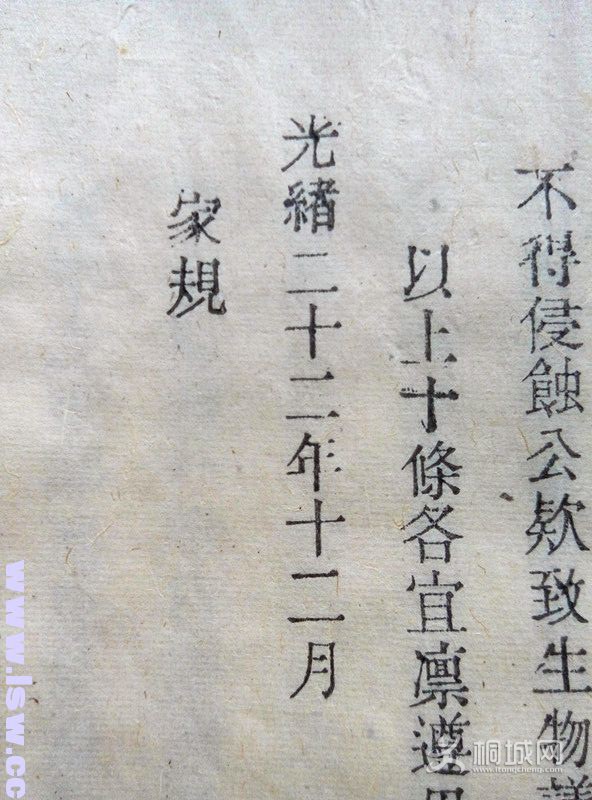 不得侵蝕公欵致生物
以上十條各宜凛遵
光緒二十二年十二月
家規
www.lsw.cc
桐城网